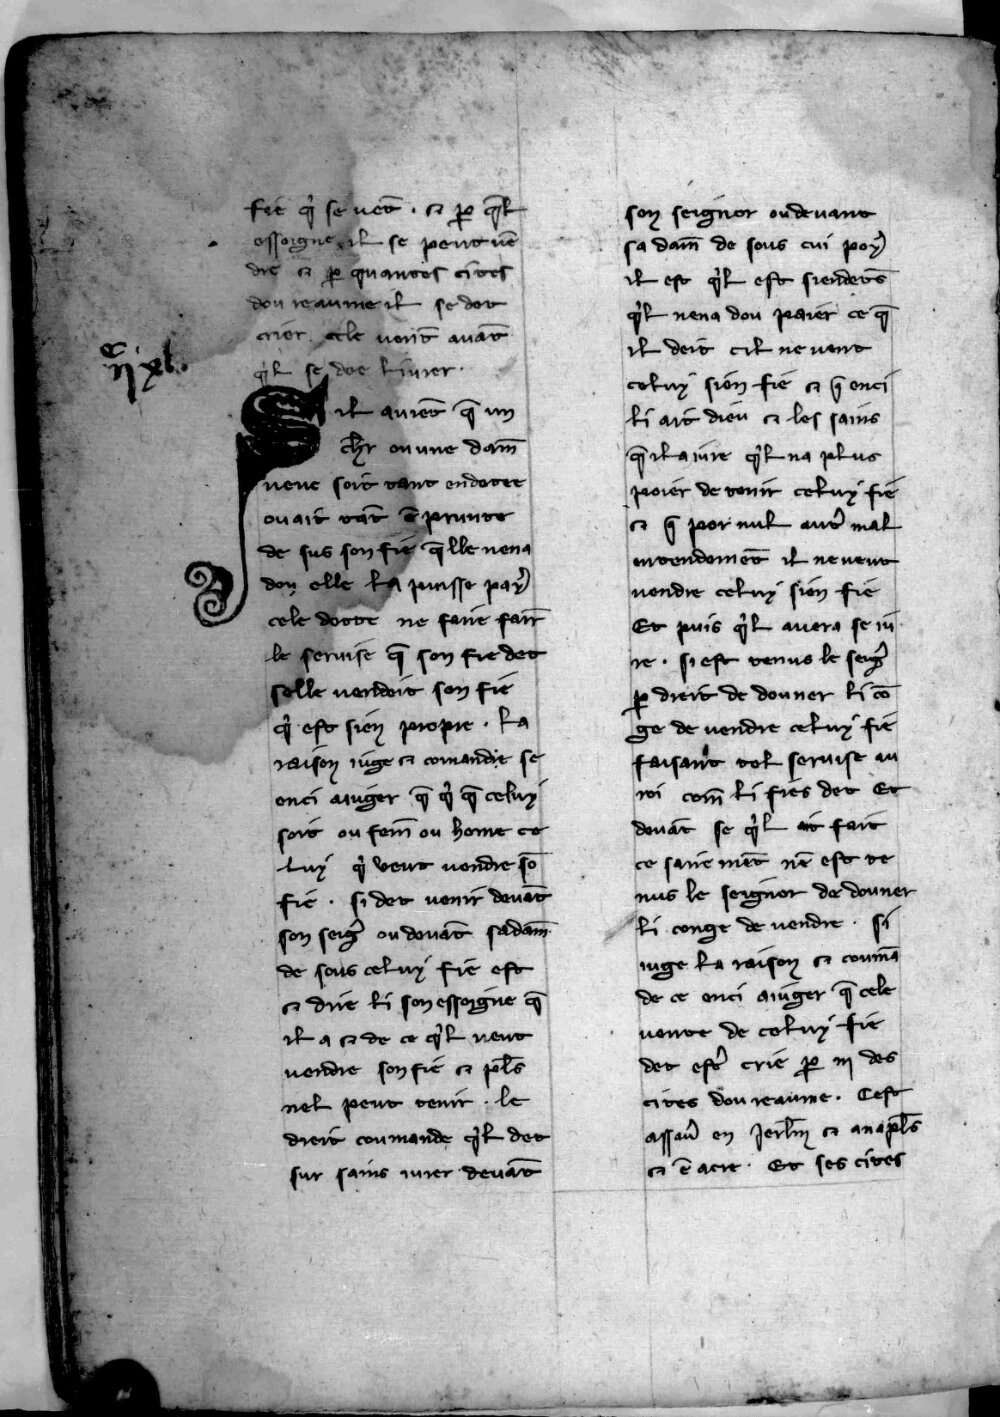 fie q̓ se uet̄ · ⁊ ꝑ q̄l
essoigne il se peut uē
dre ⁊ ꝑ quantes cites
dou reaume il se det
crier cele uent̄ auāt
q̓l se doe liurer ·
Sil auiēt q̄ un
ch̄r ou une dam̄
ueue soit tant endetee
ou ait tāt ē prunte
de sus son fie q̄lle nena
don elle la puisse pay̓
cele dette ne faire fair̄
le seruise q̄ son fie det
selle uendoit son fie
q̓ est sien propre · la
raison iuge ⁊ comande se
enci aiuger q̄ q̓ q̄ celuy
soit ou fem̄ ou home ce
luy q̓ veut uendre sō
fie · si det uenir deuāt
son seig̓ ou deuāt sa dam̄
de sous celuy fie est
⁊ dire li son essoigne q̄
il a ⁊ de ce q̓l ueut
uendre son fie ⁊ pl̄s
nel peut tenir · le
dreit coumande q̓l det
sur sains iurer deuāt
son seignor ou deuant
sa dam̄ de sous cui poy̓
il est q̓l est si endetēs
q̓l nena dou paier ce q̄
il deit cil ne uent
celuy sien fie ⁊ q̄ enci
li ait dieu ⁊ les sains
q̄ il a iure q̓l na plus
poier de tenir celuy fie
⁊ q̄ por nul aut̓ mal
entendemēt il ne ueut
uendre celuy sien fie
Et puis q̓l auera se iu
re · si est tenus le seig̓
ꝑ dreit de douner li cō
ge de uendre celuy fie
faisant tel seruise au
roi com̄ li fies det Et
deuāt se q̓l ait fait
ce sairemēt nē est te
nus le seignor de douner
li conge de uendre · Si
iuge la raison ⁊ coumā
de ce enci aiuger q̄ cele
uente de celuy fie
det est̓ crie ꝑ iii des
cites dou reaume · Cest
assau̓ en Jerl̄m ⁊ a napl̄s
⁊ ē acre · Et ses cites